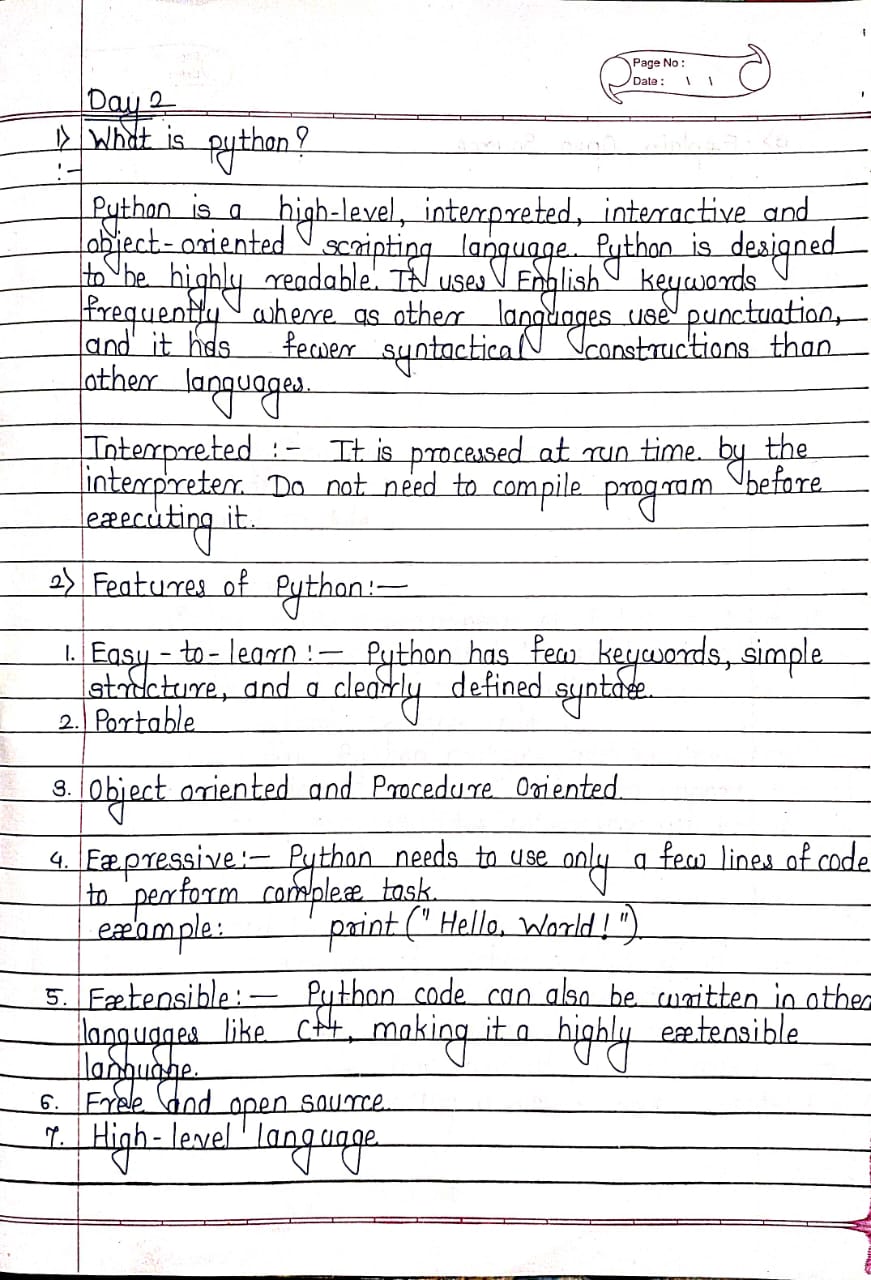 Page No :
Date : \ \
Day 2
1) What is python?
:-
Python is a high-level, interpreted, interactive and
object-oriented scripting language. Python is designed
to be highly readable. It uses English keywords
frequently where as other languages use punctuation,
and it has fewer syntactical constructions than
other languages.
Interpreted :- It is processed at run time. by the
interpreter. Do not need to compile program before
executing it.
2) Features of Python:-
1. Easy-to-learn :- Python has few keywords, simple
structure, and a clearly defined syntax.
2. Portable
3. Object oriented and Procedure Oriented.
4. Expressive:- Python needs to use only a few lines of code
to perform complex task.
example: print ("Hello, World!")
5. Extensible:- Python code can also be written in other
languages like C++, making it a highly extensible
language.
6. Free and open source.
7. High-level language